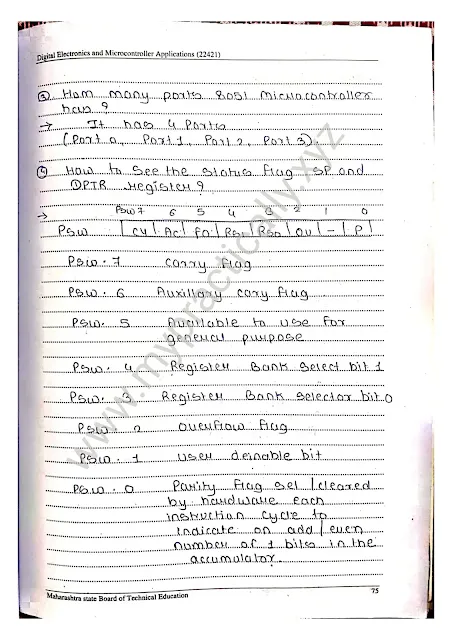 Digital Electronics and Microcontroller Applications (22421)
③ How many ports 8051 microcontroller
has ?
→ It has 4 Ports
(Port 0, Port 1, Port 2, Port 3).
④ How to see the status flag SP and
DPTR register ?
→ PSW 7 6 5 4 3 2 1 0
PSW | CY | AC | F0 | RS1 | RS0 | OV | - | P |
PSW. 7 carry flag
PSW. 6 Auxillary cary flag
PSW. 5 Available to use for
general purpose
PSW. 4 Register Bank Select bit 1
PSW. 3 Register Bank selector bit 0
PSW 2 overflow flag
PSW. 1 user deinable bit
PSW. 0 Parity flag sel / cleared
by hardware each
instruction cycle to
indicate on add / even
number of 1 bits in the
accumulator.
Maharashtra state Board of Technical Education
75
www.mypractically.xyz